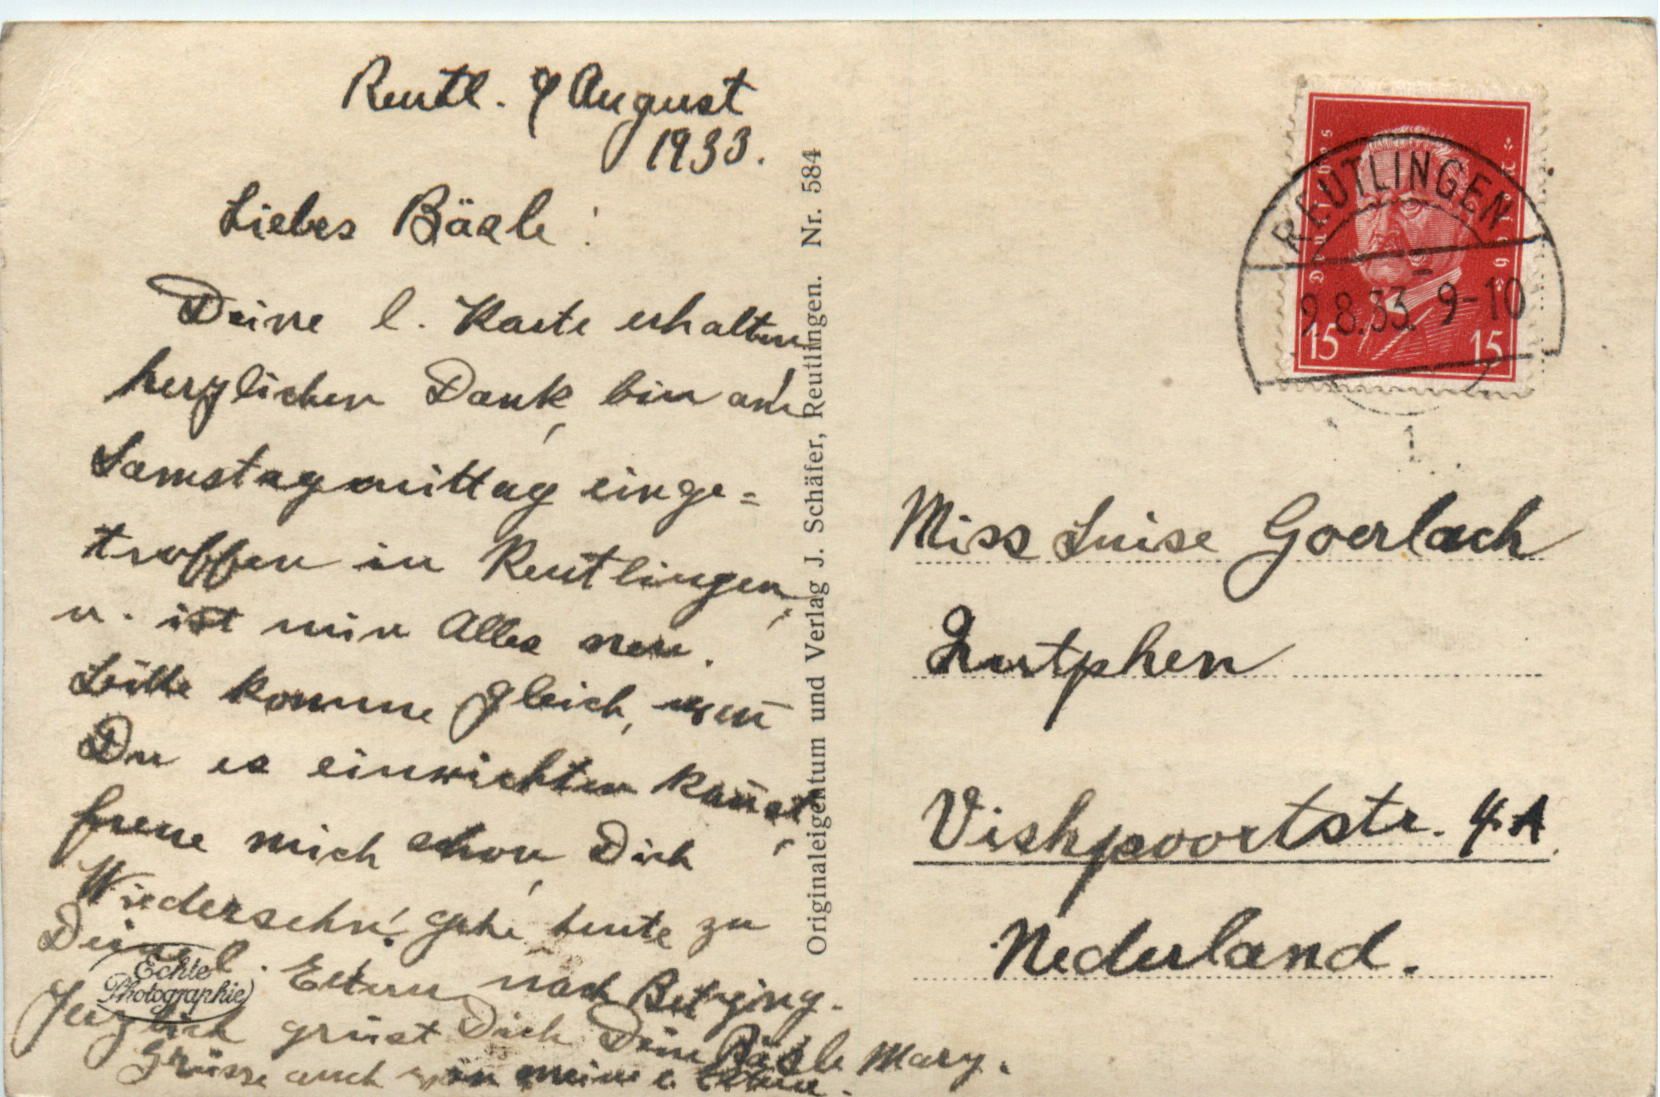 Reutl. 9 August
1933.
Liebes Bäsle!
Deine l. Karte erhalten
herzlichen Dank, bin am
Samstagmittag einge=
troffen in Reutlingen,
u. ist mir Alles neu.
Bitte komme gleich, wen̄
Du es einrichten kan̄st,
freue mich schon, Dich
Wiedersehn! Gehe heute zu
Deinen l. Eltern nach Betzing.
Herzlich grüsst Dich Dein Bäsle Mary.
Grüsse auch von meine l. Eltern.
Echte
Photographie
Originaleigentum und Verlag J. Schäfer, Reutlingen. Nr. 584
Deutsches Reich
15 15
REUTLINGEN
9.8.33. 9-10
1
Miss Luise Goerlach
Zutphen
Vishpoortstr. 4A.
Nederland.